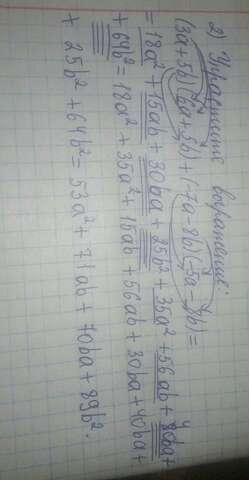 2) Упростить выражение:
(3a+5b)(6a+5b)+(-7a-8b)(-5a-8b)=
=18a²+15ab+30ba+25b²+35a²+56ab+40ba+
+64b²=18a²+35a²+15ab+56ab+30ba+40ba+
+25b²+64b²=53a²+71ab+70ba+89b².